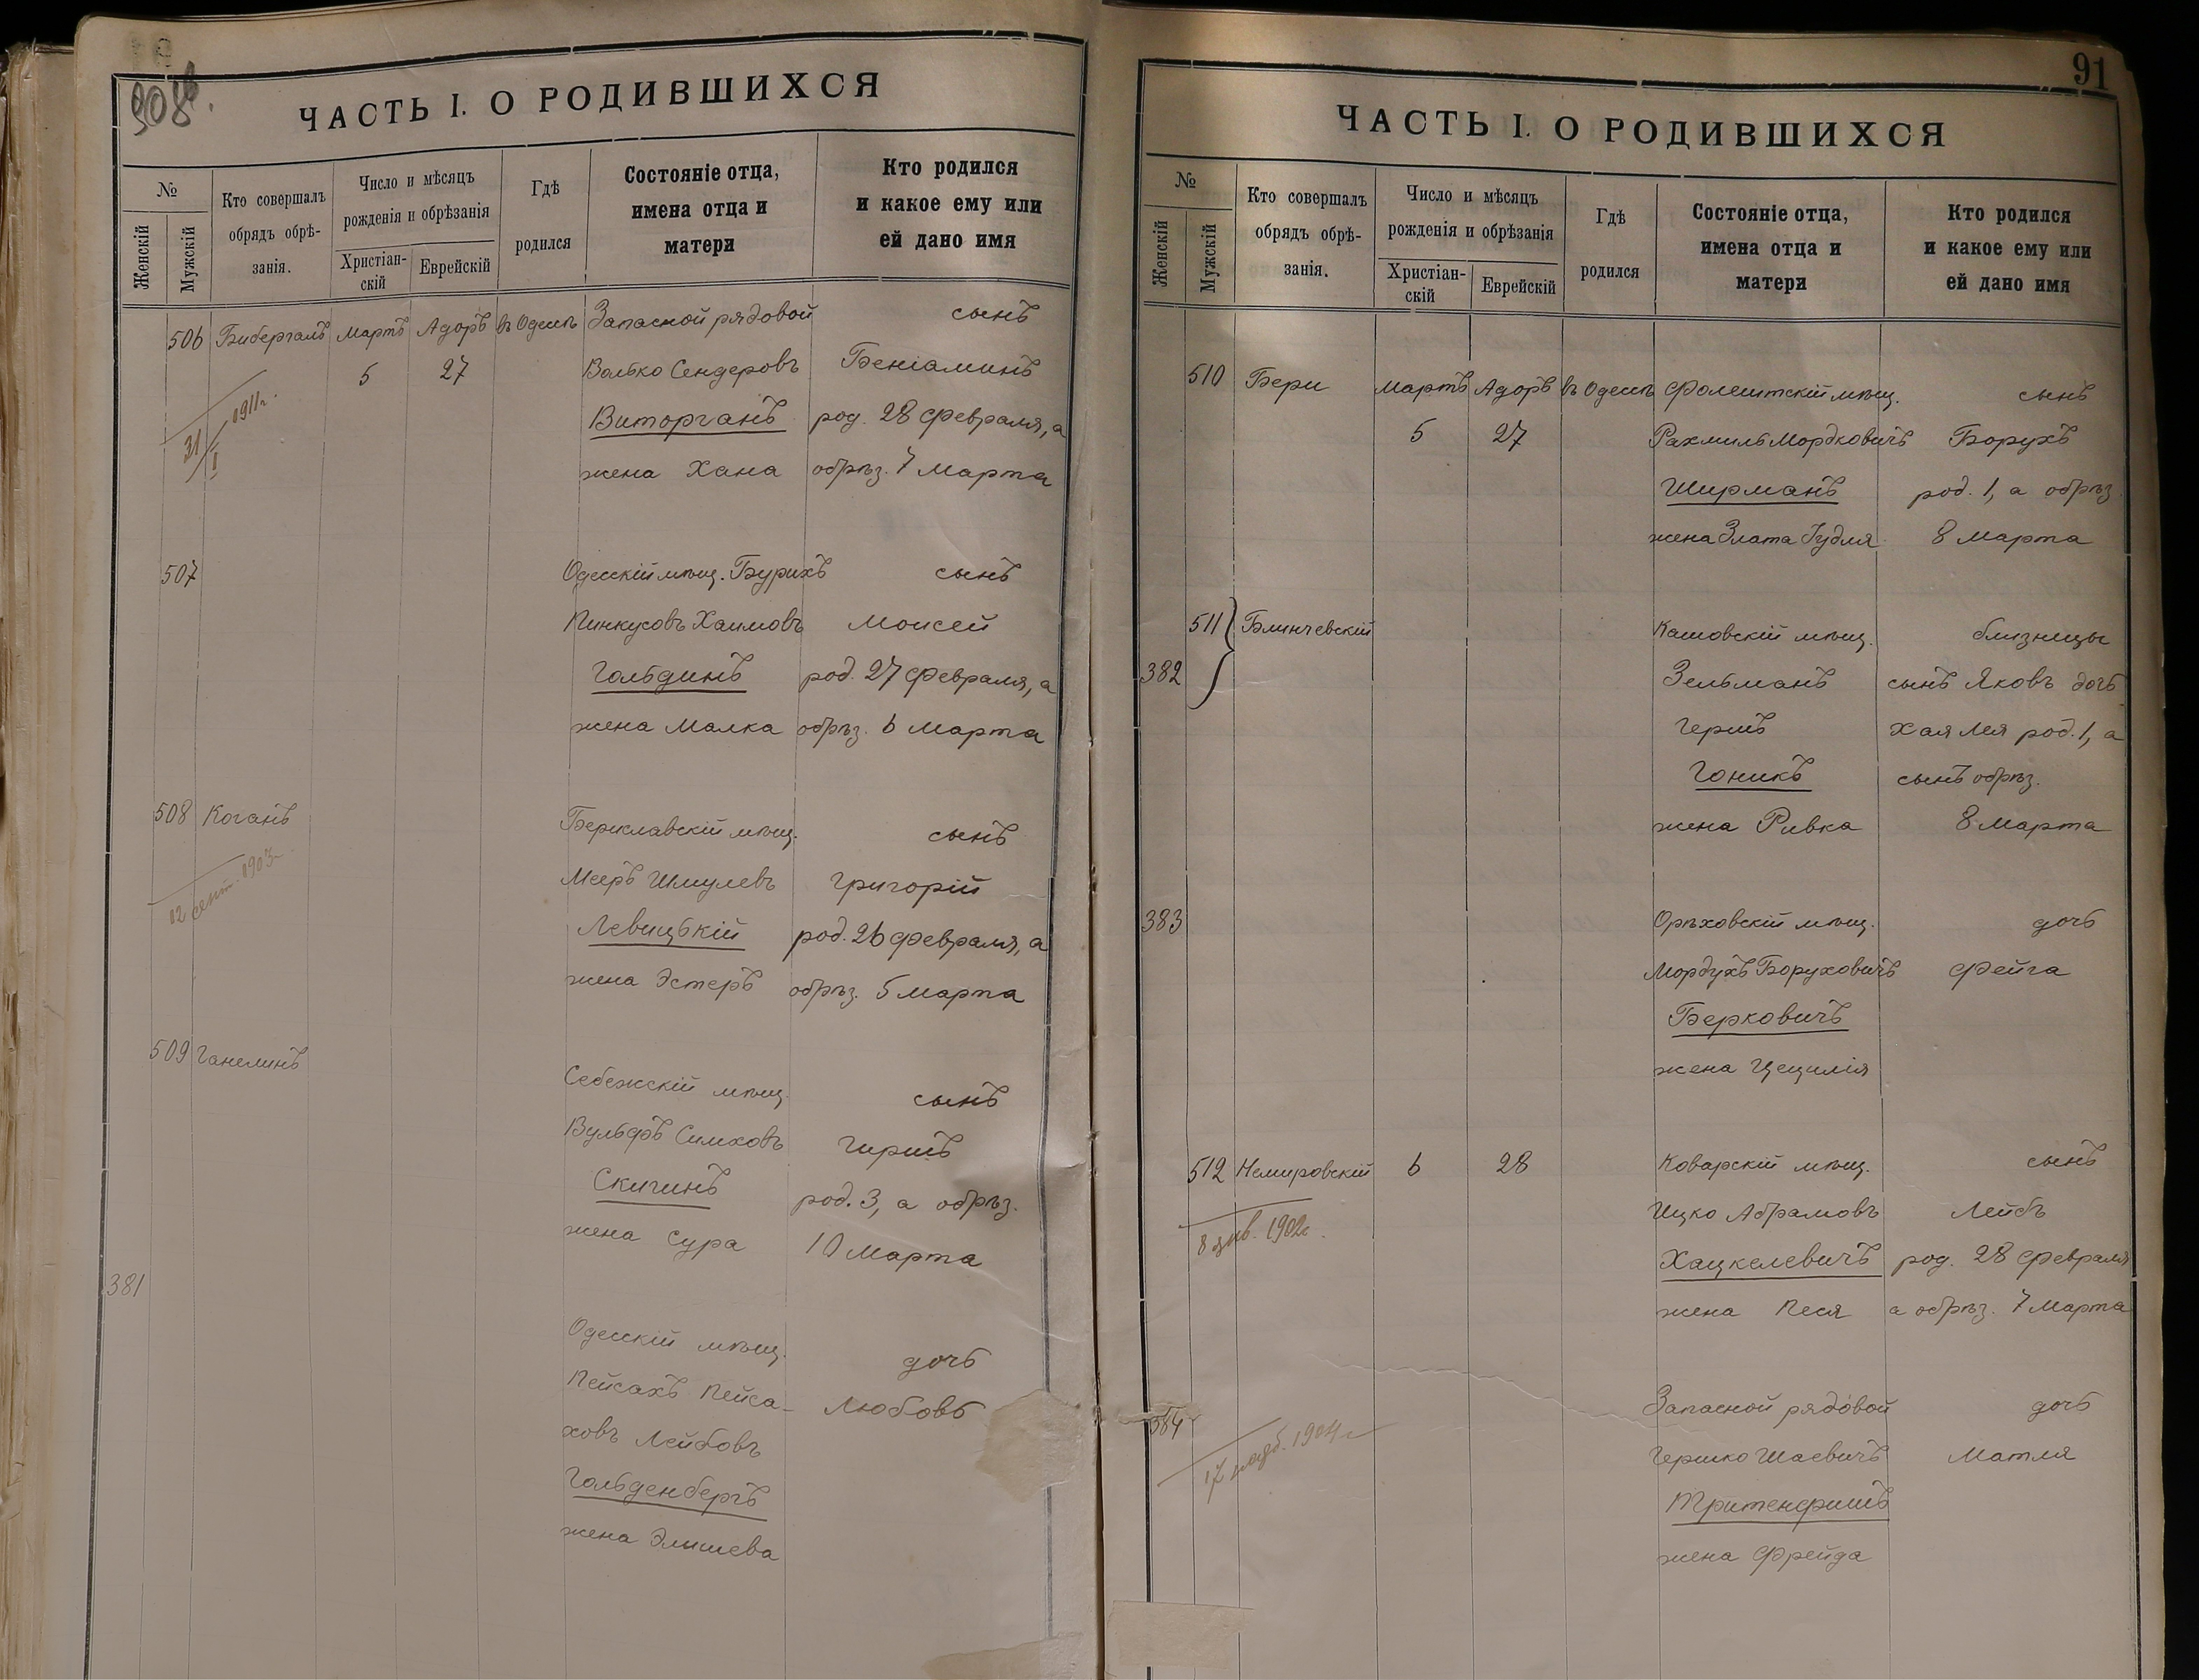 908
ЧАСТЬ I. О РОДИВШИХСЯ
№
Женскій
Мужскій
Кто совершалъ
обрядъ обрѣ-
занія.
Число и мѣсяцъ
рожденія и обрѣзанія
Христіан-
скій
Еврейскій
Гдѣ
родился
Состояніе отца,
имена отца и
матери
Кто родился
и какое ему или
ей дано имя
506 Бибергалъ Мартъ Адоръ въ Одессѣ Запасной рядовой сынъ
5 27 Волько Сендеровъ Беніаминъ
31/I 1911 г. Виторганъ род. 28 Февраля, а
жена Хана обрѣз. 7 Марта
507 Одесскій мѣщ. Бурихъ сынъ
Пинкусовъ Хаимовъ Моисей
Гольдинъ род. 27 Февраля, а
жена Малка обрѣз. 6 Марта
508 Коганъ Бериславскій мѣщ. сынъ
12 сент. 1903 г. Мееръ Шмулевъ Григорій
Левицькій род. 26 Февраля, а
жена Эстеръ обрѣз. 5 Марта
509 Ганелинъ Себежскій мѣщ. сынъ
Вульфъ Симховъ Гиршъ
Скигинъ род. 3, а обрѣз.
жена Сура 10 Марта
381 Одесскій мѣщ. дочь
Пейсахъ Пейса- Любовь
ховъ Лейбовъ
Гольденбергъ
жена Элишева
91
ЧАСТЬ I. О РОДИВШИХСЯ
№
Женскій
Мужскій
Кто совершалъ
обрядъ обрѣ-
занія.
Число и мѣсяцъ
рожденія и обрѣзанія
Христіан-
скій
Еврейскій
Гдѣ
родился
Состояніе отца,
имена отца и
матери
Кто родился
и какое ему или
ей дано имя
510 Бери Мартъ Адоръ въ Одессѣ Фолештскій мѣщ. сынъ
5 27 Рахмиль Мордковичъ Борухъ
Ширманъ род. 1, а обрѣз.
жена Злата Гудля 8 Марта
511 Блинчевскій Кашовскій мѣщ. близнецы
382 Зельманъ сынъ Яковъ дочь
Гершъ Хая Лея род. 1, а
Гоникъ сынъ обрѣз.
жена Ривка 8 Марта
383 Орѣховскій мѣщ. дочь
Мордухъ Боруховичъ Фейга
Берковичъ
жена Цецилія
512 Немировскій 6 28 Коварскій мѣщ. сынъ
8 янв. 1902 г. Ицко Абрамовъ Лейбъ
Хацкелевичъ род. 28 Февраля
жена Песя а обрѣз. 7 Марта
384 Запасной рядовой дочь
17 1904 г. Гершко Шаевичъ Матля
Тритенфишъ
жена Фрейда